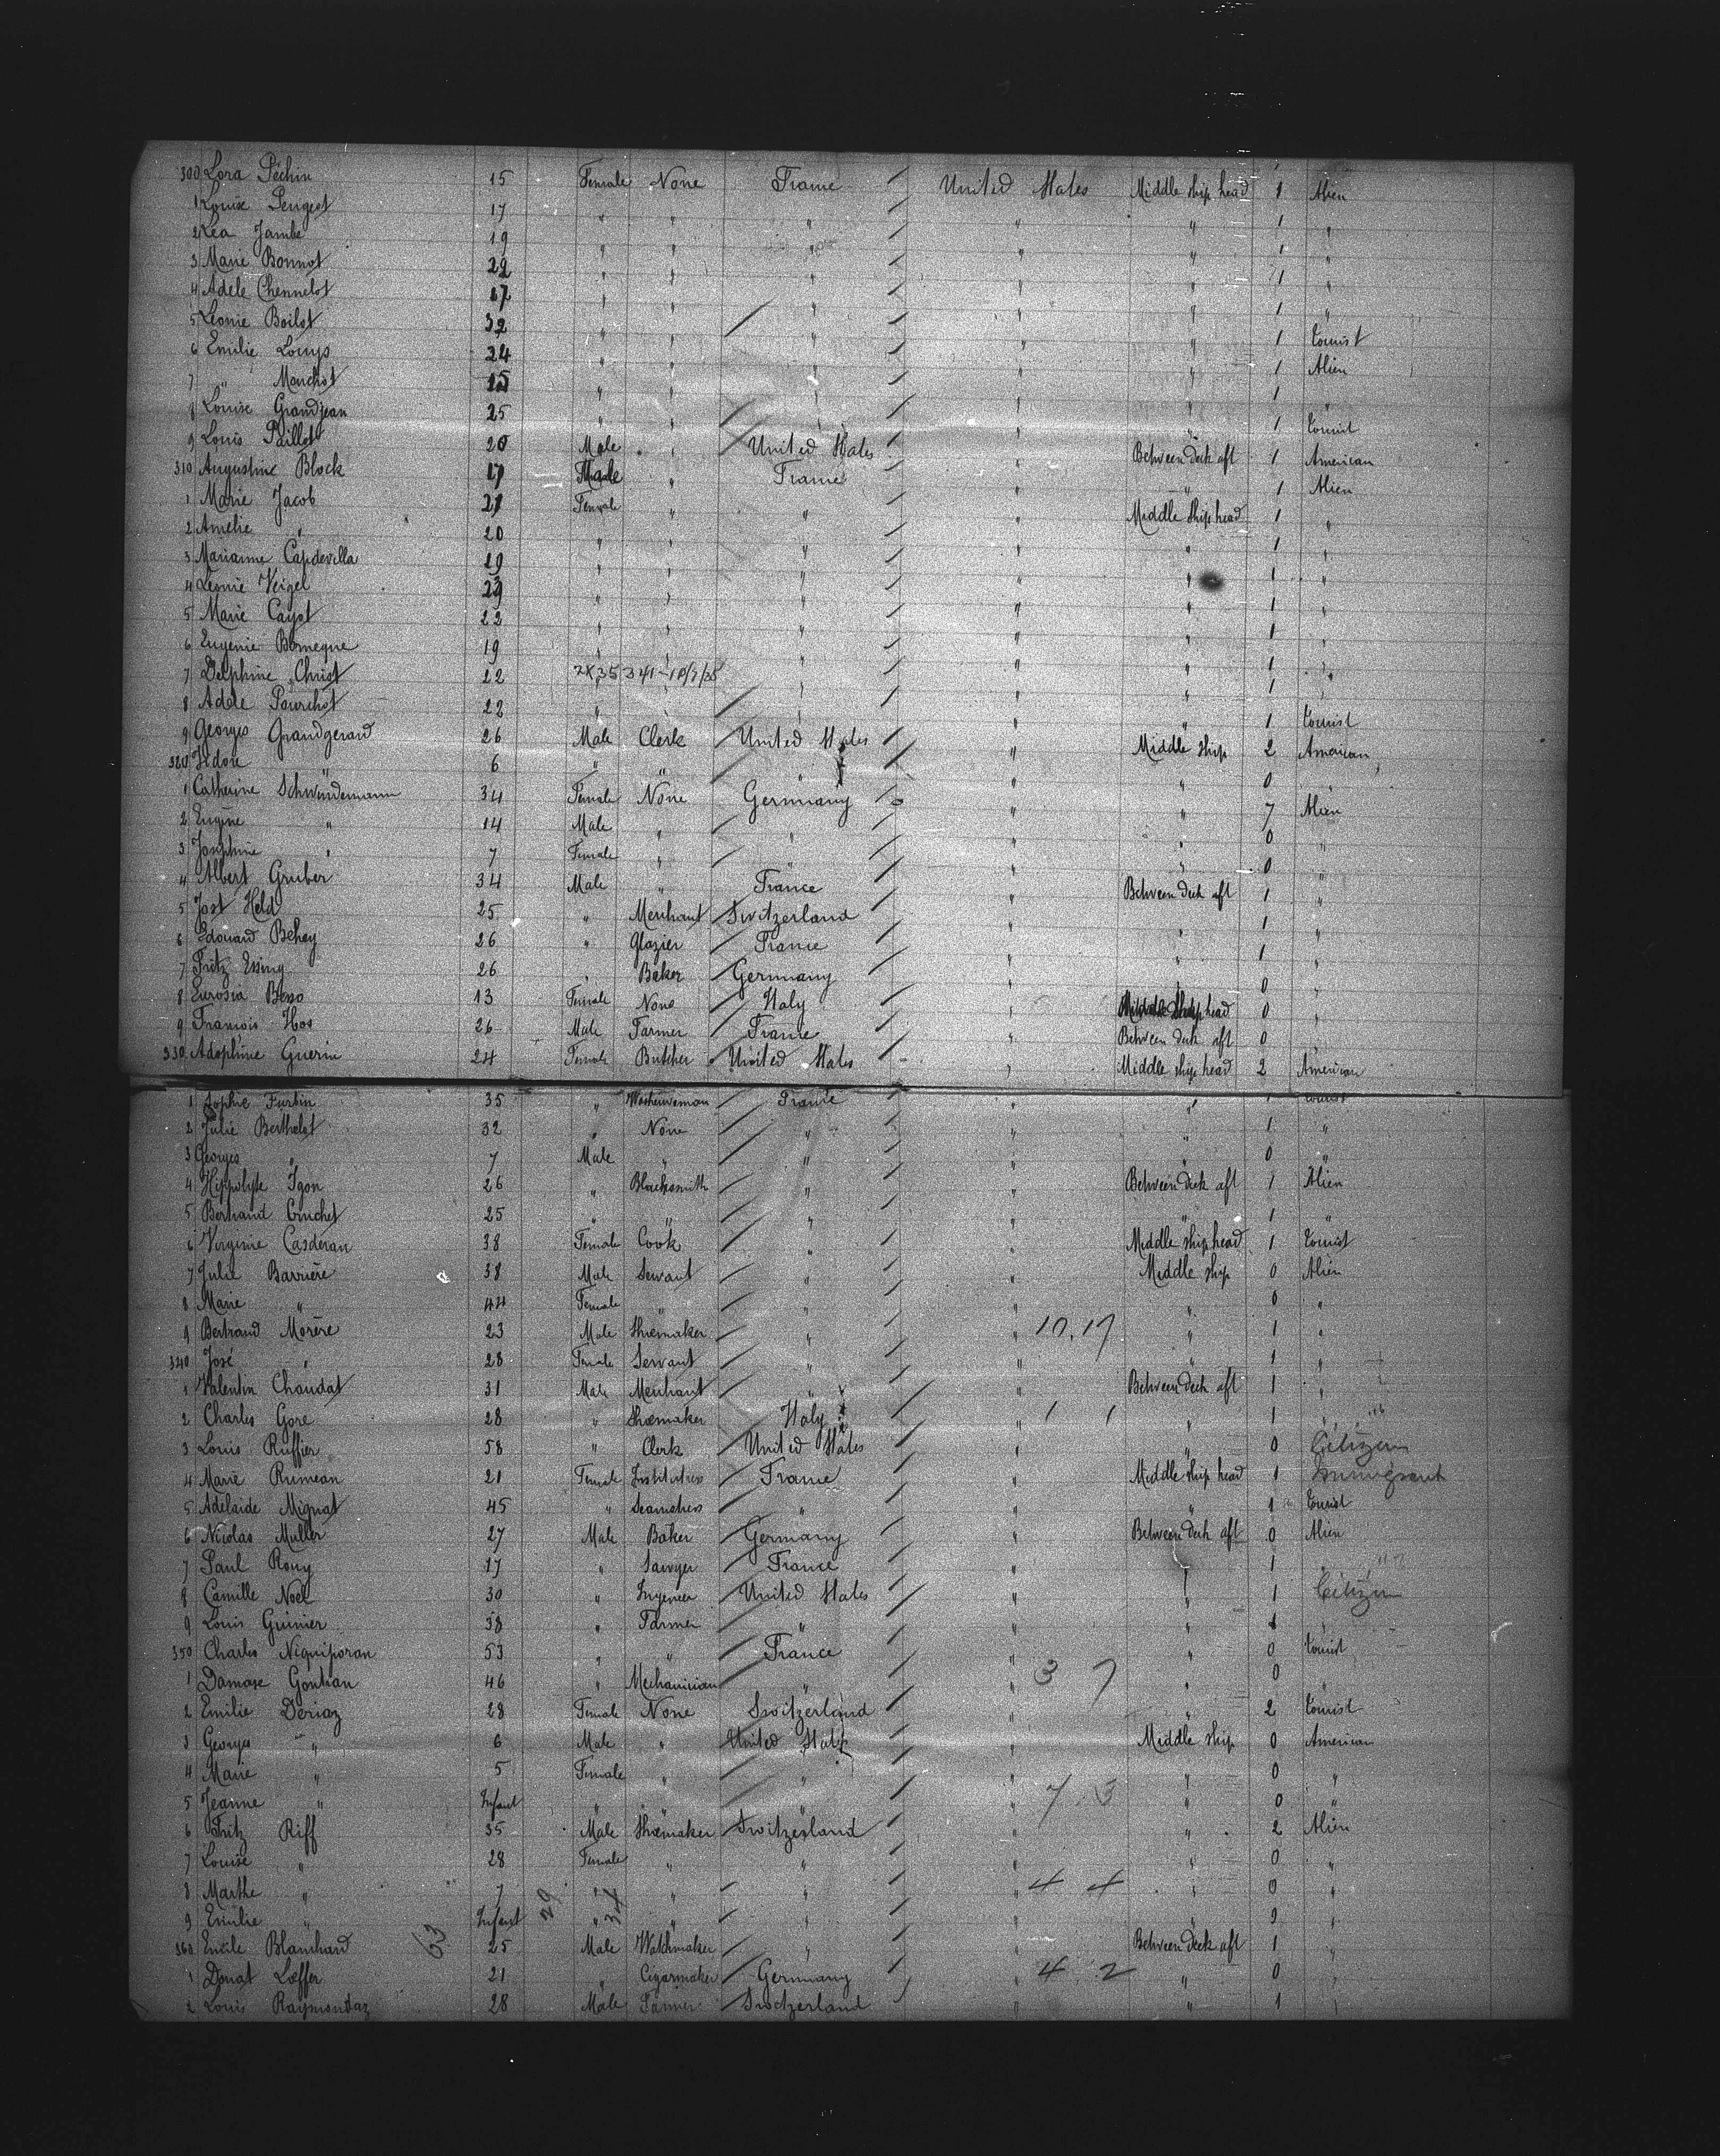 300 Lora Péchin 15 Female None France United States Middle ship head 1 Alien
1 Louise Peugeot 17 " " " " " 1 "
2 Léa Jambe 19 " " " " " 1 "
3 Marie Bonnot 22 " " " " " 1 "
4 Adèle Chennelot 17 " " " " " 1 "
5 Léonie Boilot 32 " " " " " 1 tourist
6 Emilie Louys 24 " " " " " 1 Alien
7 " Manchot 25 " " " " " 1 "
8 Louise Grandjean 25 " " " " " 1 tourist
9 Louis Paillot 20 Male " United States " Between deck aft 1 American
310 Augustine Block 17 " France " " 1 Alien
1 Marie Jacob 21 Female " " " Middle ship head 1 "
2 Amélie " 20 " " " " " 1 "
3 Marianne Capdevilla 29 " " " " " 1 "
4 Léonie Veigel 23 " " " " " 1 "
5 Marie Cayot 22 " " " " " 1 "
6 Eugénie Bornèque 19 " " " " " 1 "
7 Delphine Christ 22 " " " 1 "
8 Adèle Pourchot 22 " " " " " 1 tourist
9 Georges Grandgerard 26 Male Clerk United States " Middle ship 2 American
320 Isidore 6 " " " " " 0 "
1 Catherine Schwindemann 34 Female None Germany " " 7 Alien
2 Eugène " 14 Male " " " " 0 "
3 Joséphine " 7 Female " " " " 0 "
4 Albert Gruber 34 Male " France " Between deck aft 1 "
5 Jost Held 25 " Merchant Switzerland " " 1 "
6 Edouard Behey 26 " Glazier France " " 1 "
7 Fritz Essing 26 " Baker Germany " " 0 "
8 Eurosia Besso 13 Female None Italy " Middle ship head 0 "
9 François Hos 26 Male Farmer France " Between deck aft 0 "
330 Adolphine Guerin 24 Female Butcher United States " Middle ship head 2 American
1 Sophie Furbin 35 " Washerwoman France " " 1 tourist
2 Julie Berthelot 32 " None " " " 1 "
3 Georges " 7 Male " " " " 0 "
4 Hippolyte Igon 26 " Blacksmith " " Between deck aft 1 Alien
5 Bertrand Cruchet 25 " " " " " 1 "
6 Virginie Casderan 38 Female Cook " " Middle ship head 1 tourist
7 Julie Barrière 38 Male Servant " " Middle ship 0 Alien
8 Marie " 44 Female " " " " 0 "
9 Bertrand Morère 23 Male Shoemaker " " 10.17 " 1 "
340 José " 28 Female Servant " " " 1 "
1 Valentin Chaudat 31 Male Merchant " " Between deck aft 1 "
2 Charles Gore 28 " Shoemaker Italy " 1 1 " 1 "
3 Louis Ruffier 58 " Clerk United States " " 0 Citizen
4 Marie Rumeau 21 Female Institutress France " Middle ship head 1 Immigrant
5 Adelaide Mignat 45 " Seamstress " " " 1 tourist
6 Nicolas Muller 27 Male Baker Germany " Between deck aft 0 Alien
7 Paul Rouy 17 " Sawyer France " " 1 "
8 Camille Noel 30 " Ingeneer United States " " 1 Citizen
9 Louis Guinier 38 " Farmer " " " 1 "
350 Charles Niquiporan 53 " " France " " 0 tourist
1 Damase Gontran 46 " Mechanician " " 3 7 " 0 "
2 Emilie Deriaz 28 Female None Switzerland " " 2 tourist
3 Georges " 6 Male " United States " Middle ship 0 American
4 Marie " 5 Female " " " " 0 "
5 Jeanne " Infant " " " " 7 3 " 0 "
6 Fritz Riff 35 Male Shoemaker Switzerland " " 2 Alien
7 Louise " 28 Female " " " " 0 "
8 Marthe " 7 " " " " 4 4 " 0 "
9 Emilie " Infant " " " " " 0 "
360 Emile Blanchard 25 Male Watchmaker " " Between deck aft 1 "
1 Donat Lœffer 21 " Cigarmaker Germany " 4 2 " 0 "
2 Louis Raymondaz 28 Male Farmer Switzerland " " 1 "
63 29 34